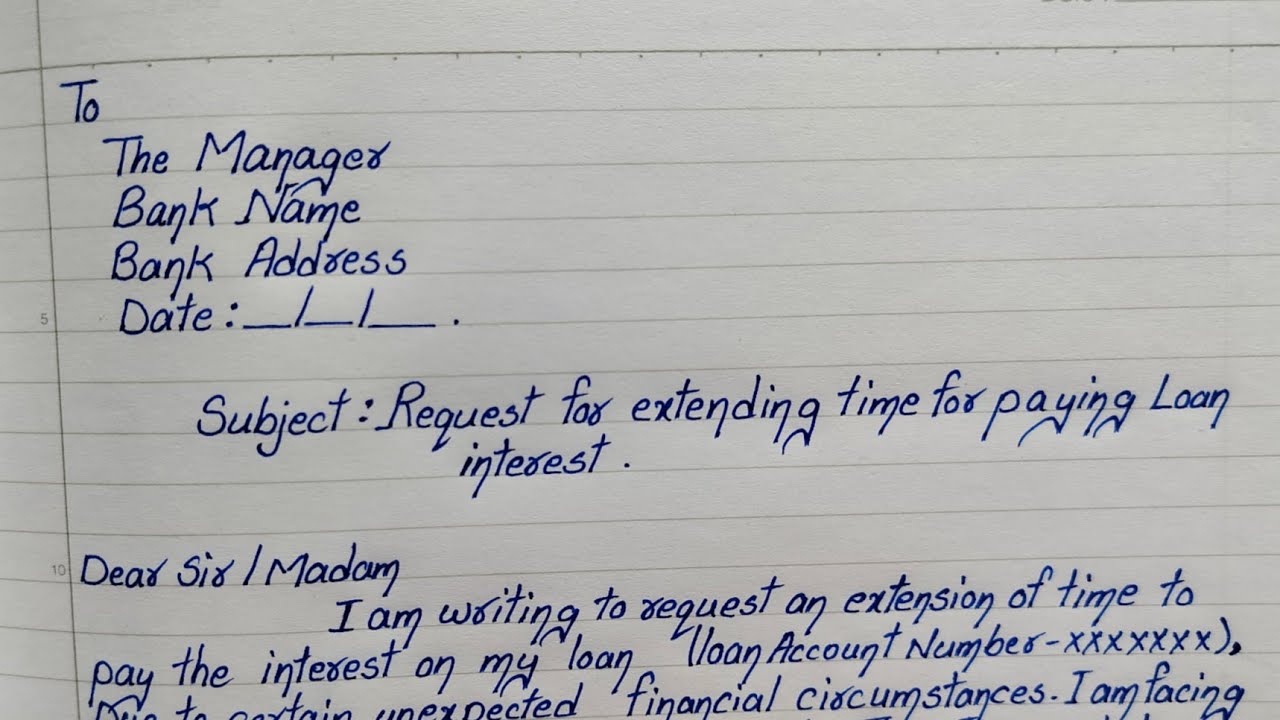 To
The Manager
Bank Name
Bank Address
Date: __/__/__ .
Subject: Request for extending time for paying Loan
interest.
5
10
Dear Sir / Madam
I am writing to request an extension of time to
pay the interest on my loan (loan Account Number-xxxxxxx),
Due to certain unexpected financial circumstances. I am facing